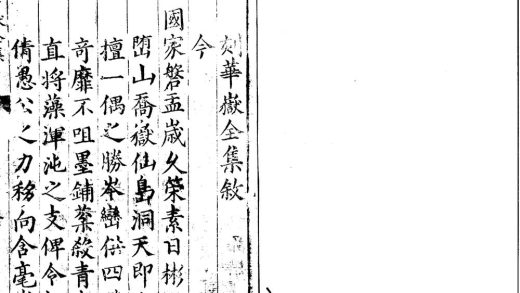 刻華嶽全集敘
今
國家磐盂歲久榮素日彬
堕山喬嶽仙島洞天即
擅一偶之勝岑巒供四
竒靡不咀墨鋪蘂殺青
直将藻渾沌之支俾令
倩愚公之力移向含毫